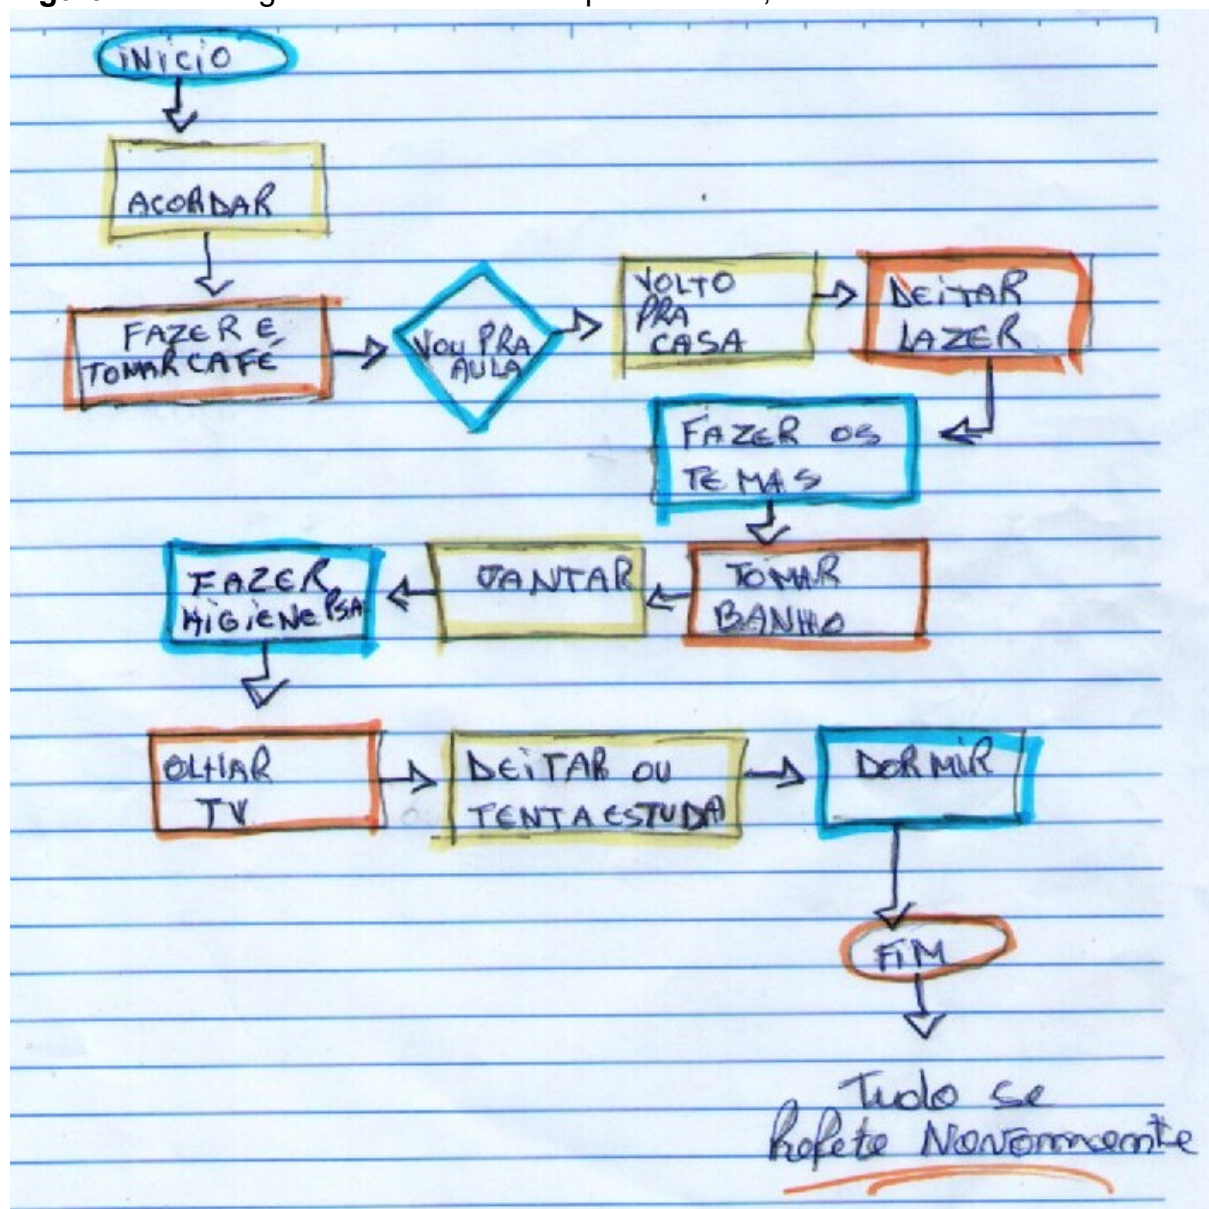 INICIO
ACORDAR
FAZER E
TOMAR CAFÉ
VOU PRA
AULA
VOLTO
PRA
CASA
DEITAR
LAZER
FAZER OS
TEMAS
TOMAR
BANHO
JANTAR
FAZER
HIGIENE PSA
OLHAR
TV
DEITAR OU
TENTA ESTUDA
DORMIR
FIM
Tudo se
Repete Novamente